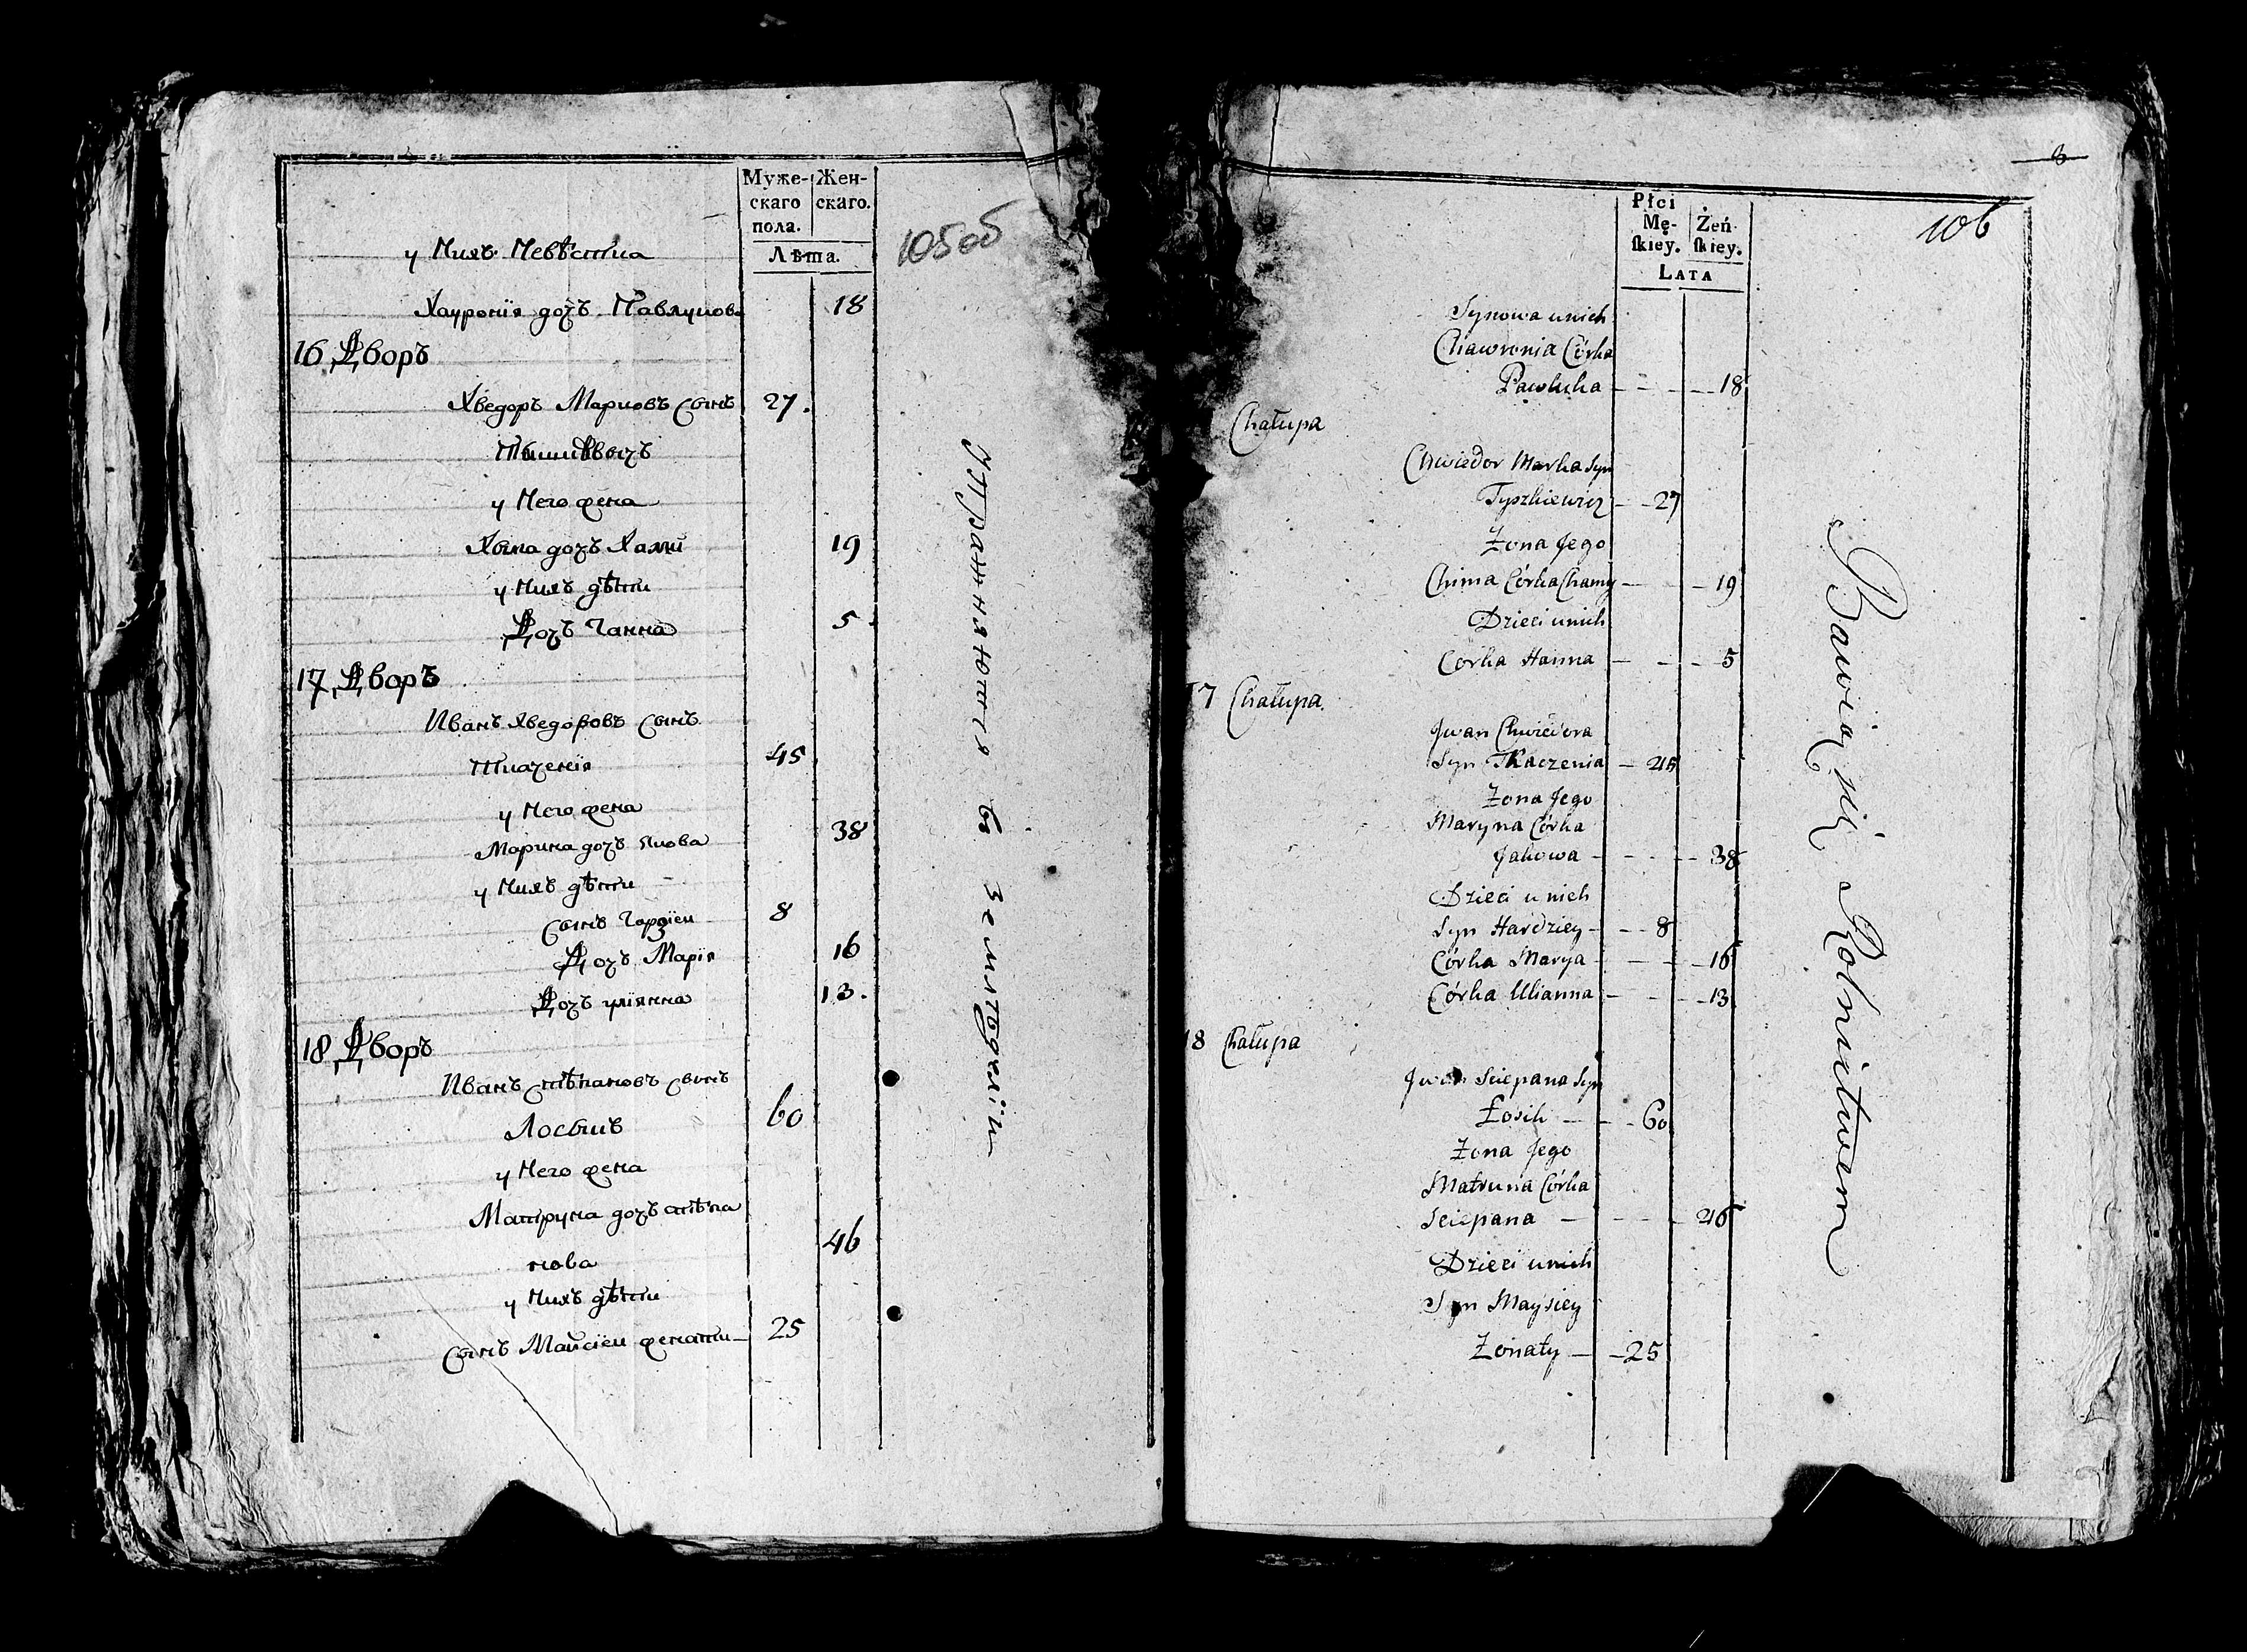 Муже-
скаго
пола.
Жен-
скаго.
Лѣта.
105об
у Нихъ Невѣстка
Хауронія дочъ Павлукова 18
16 Дворъ
Хведоръ Марковъ Сынъ 27.
Тышкѣвычъ
у Него жена
Хыма дочъ Хамы 19
у Нихъ дѣти
Дочъ Ганна 5
17 Дворъ
Иванъ Хведоровъ Сынъ
Ткаченія 45
у Него жена
Марина дочъ Якова 38
у Нихъ дѣти
Сынъ Гордіеи 8
Дочъ Марія 16
Дочъ уліянна 13.
18 Дворъ
Иванъ стѣпановъ сынъ
Лосыкъ 60
у Него жена
Матруна дочъ стѣпа
нова 46
у Нихъ дѣти
Сынъ Майсіеи женаты 25
упражняются въ земледеліи
Płci
Mę-
ſkiey.
Żeń-
ſkiey.
LATA
8
106
Synowa u nich
Chawronia Córka
Pawluka - - - 18
Chałupa
Chwiedor Marka Syn
Tyszkiewicz - - 27
Żona Jego
Chima Córka Chamy - - 19
Dzieci u nich
Corka Hanna - - - 5
17 Chałupa
Jwan Chwiedora
Syn Tkaczenia - 45
Żona Jego
Maryna Córka
Jakowa - - - - 38
Dzieci u nich
Syn Hardziey - - - 8
Córka Marya - - - 16
Córka Ulianna - - - 13
18 Chałupa
Jwan Sciepana Syn
Łosik - - - 60
Żona Jego
Matruna Córka
Sciepana - - - - 46
Dzieci u nich
Syn Maysiey
Żonaty - - 25
Bawią się Rolnictwem